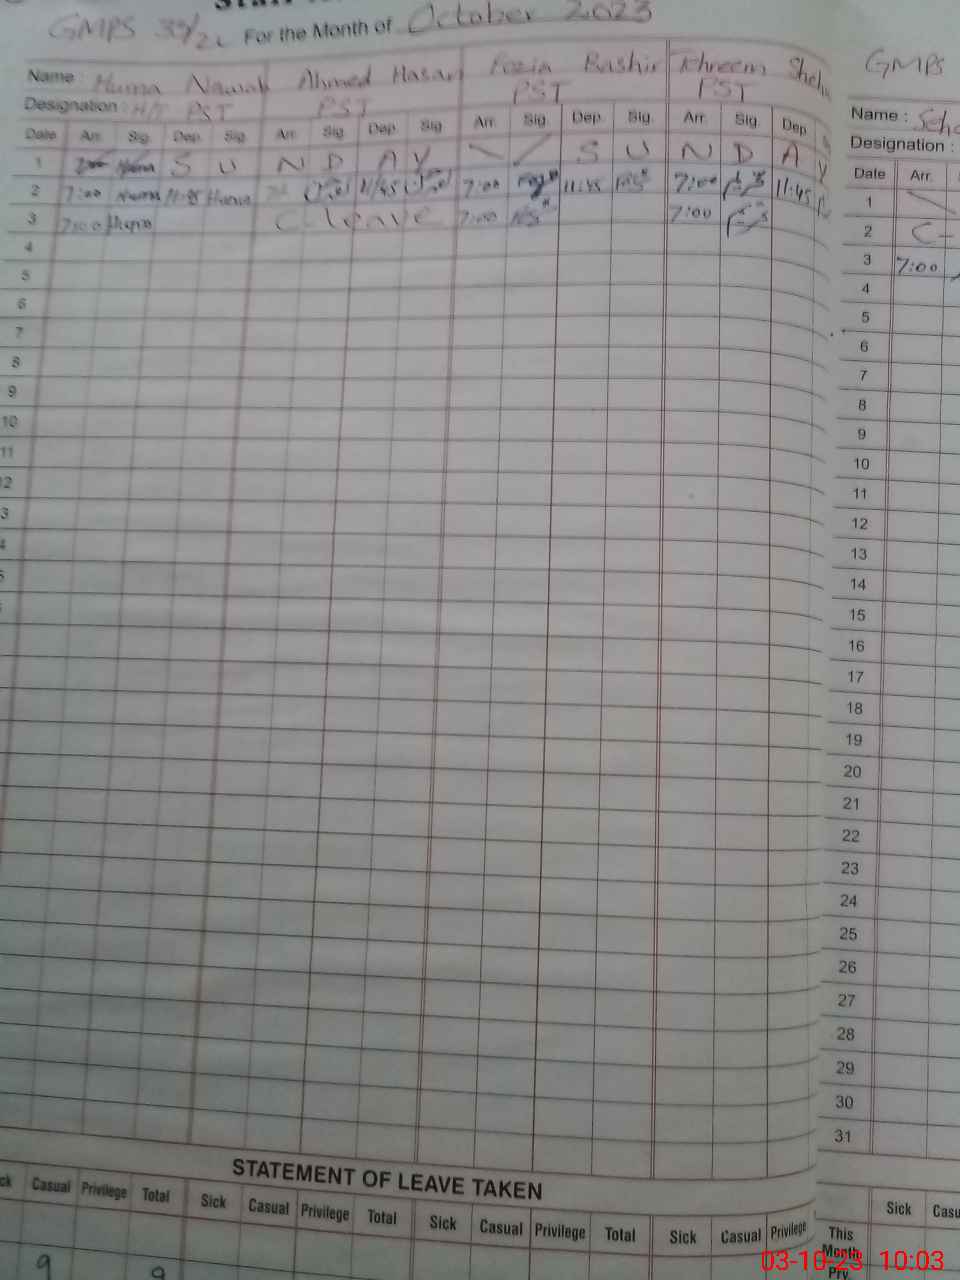 GMPS For the Month of October 2023
Name : Huma Nawab Ahmed Hasan Fozia Bashir
Designation : H/T PST PST PST PST
Date Arr. Sig. Dep. Sig. Arr. Sig. Dep. Sig. Arr. Sig. Dep. Sig. Arr. Sig. Dep.
1 Huma S U N D A Y S U N D A Y
2 7:00 Huma 11:45 Huma 11:45 7:00 11:45 7:00 11:45
3 7:00 Huma C-leave 7:00 7:00
4
5
6
7
8
9
10
11
2
3
4
5
STATEMENT OF LEAVE TAKEN
Casual Privilege Total Sick Casual Privilege Total Sick Casual Privilege Total Sick Casual Privilege
9 9
GMPS
Name :
Designation :
Date Arr.
1
2 C-
3 7:00
4
5
6
7
8
9
10
11
12
13
14
15
16
17
18
19
20
21
22
23
24
25
26
27
28
29
30
31
Sick
This
Month
Prv
03-10-23 10:03